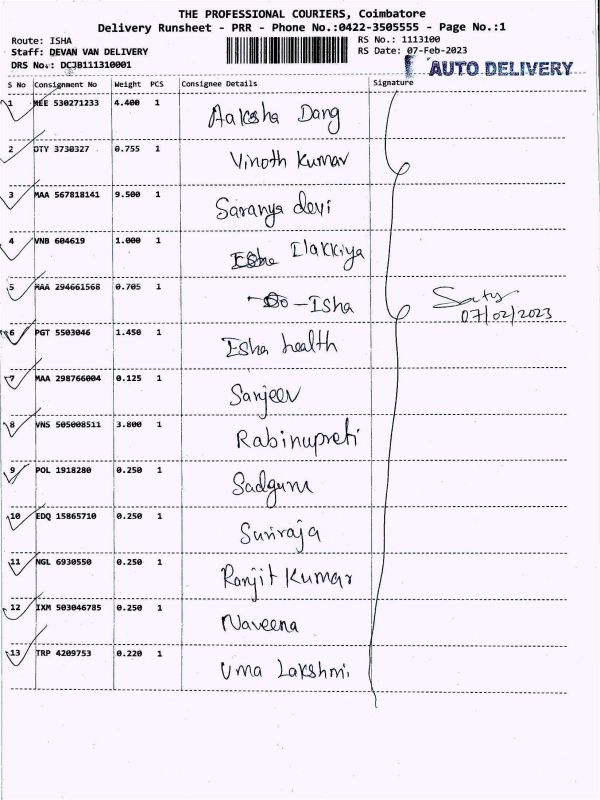 THE PROFESSIONAL COURIERS, Coimbatore
Delivery Runsheet - PRR - Phone No.:0422-3505555 - Page No.:1
Route: ISHA
Staff: DEVAN VAN DELIVERY
DRS No.: DCJB111310001
RS No.: 1113100
RS Date: 07-Feb-2023
AUTO DELIVERY
S No Consignment No Weight PCS Consignee Details Signature
1 MEE 530271233 4.400 1 Aaksha Dang
2 DTY 3730327 0.755 1 Vinoth Kumar
3 MAA 567818141 9.500 1 Saranya devi
4 VNB 604619 1.000 1 Ilakkiya
5 MAA 294661568 0.705 1 - Isha
07/02/2023
6 PGT 5503046 1.450 1 Isha health
7 MAA 298766004 0.125 1 Sanjeev
8 VNS 505008511 3.800 1 Rabinupreti
9 POL 1918280 0.250 1 Sadguru
10 EDQ 15865710 0.250 1 Suriraja
11 NGL 6930550 0.250 1 Ranjit Kumar
12 IXM 503046785 0.250 1 Naveena
13 TRP 4209753 0.220 1 Uma Lakshmi